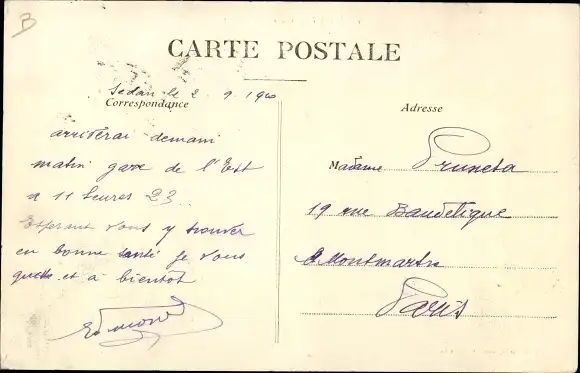 B
CARTE POSTALE
Sedan le 2 9 19
Correspondance
Adresse
arriverai demain
matin gare de l'Est
a 11 heures 23
Esperant vous y trouver
en bonne santé je vous
quitte et à bientôt
Edmond
Madame Pruneta
19 rue Baudelique
Montmartre
Paris